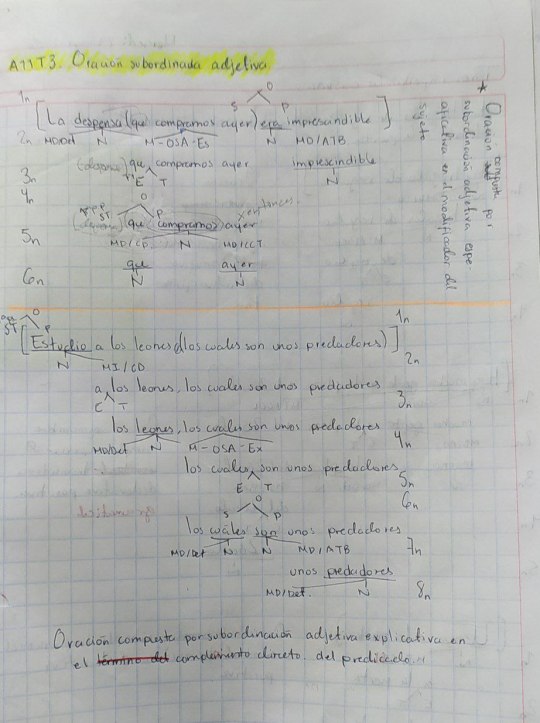 A11T3. Oración subordinada adjetiva
1n
O
S P
[La despensa (que compramos ayer) era imprescindible]
2n MD/Det N M-OSA-Es N MD/ATB
3n que compramos ayer imprescindible
E T N
4n O
P
que compramos ayer
5n MD/CD N MD/CCT
que ayer
6n N N
* Oración compuesta por
subordinación adjetiva espe
cificativa en el modificador del
sujeto
O
ST P
1n
[Estudio a los leones (los cuales son unos predadores)]
N MI/CD 2n
a los leones, los cuales son unos predadores
E T 3n
los leones, los cuales son unos predadores
MD/Det N M-OSA-Ex 4n
los cuales, son unos predadores
E T 5n
O 6n
S P
los cuáles son unos predadores
MD/Det N N MD/ATB 7n
unos predadores
MD/Det. N 8n
Oración compuesta por subordinación adjetiva explicativa en
el término del complemento directo. del predicado.